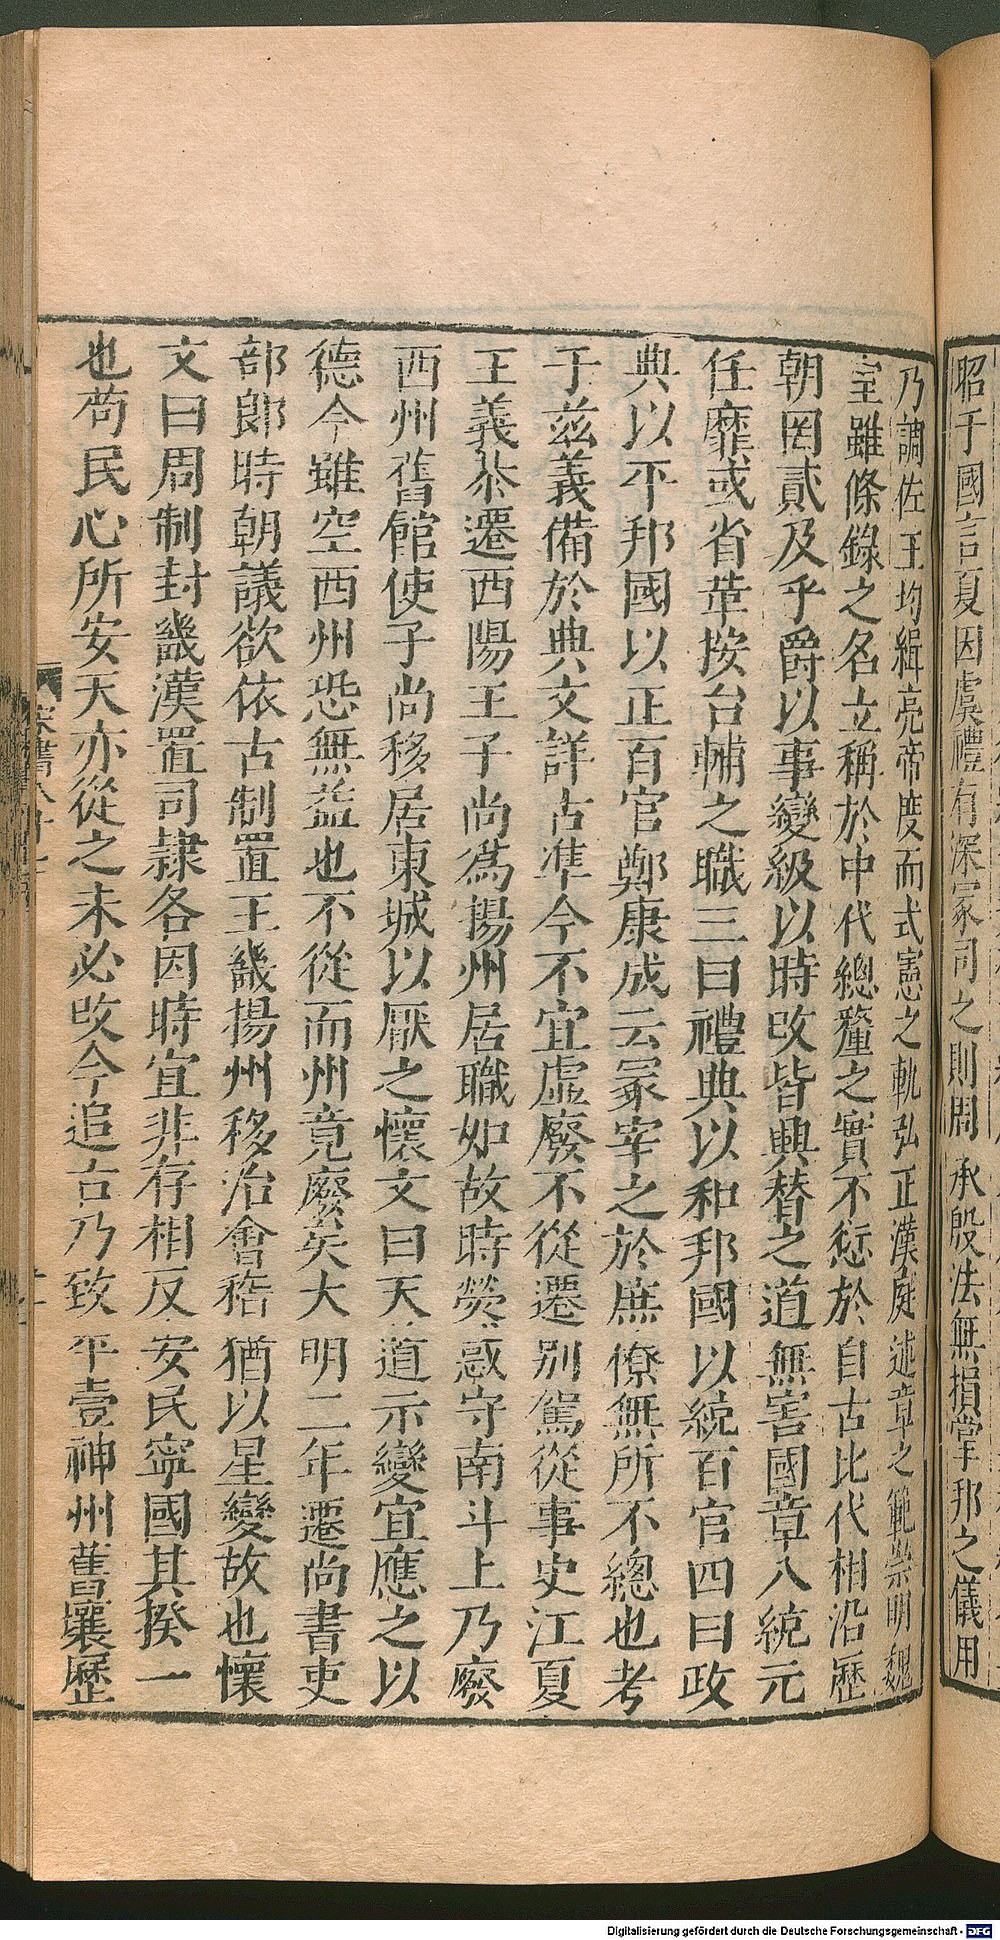 昭于國言夏因虞禮有深冢司之則周承殷法無損掌邦之儀用
乃調佐王均緝亮帝度而式憲之軌弘正漢庭述章之範崇明魏
室雖條錄之名立稱於中代總釐之實不愆於自古比代相沿歷
朝罔貳及乎爵以事變級以時改皆興替之道無害國章八統元
任靡或省革按台輔之職三曰禮典以和邦國以統百官四曰政
典以平邦國以正百官鄭康成云冢宰之於庶僚無所不總也考
于茲義備於典文詳古準今不宜虛廢不從遷别駕從事史江夏
王義恭遷西陽王子尚為揚州居職如故時熒惑守南斗上乃廢
西州舊館使子尚移居東城以厭之懷文曰天道示變宜應之以
德今雖空西州恐無益也不從而州竟廢矣大明二年遷尚書吏
部郎時朝議欲依古制置王畿揚州移治會稽猶以星變故也懷
文曰周制封畿漢置司隷各因時宜非存相反安民寧國其揆一
也苟民心所安天亦從之未必改今追古乃致平壹神州舊壤歷
宋書八十二
Digitalisierung gefördert durch die Deutsche Forschungsgemeinschaft - DFG